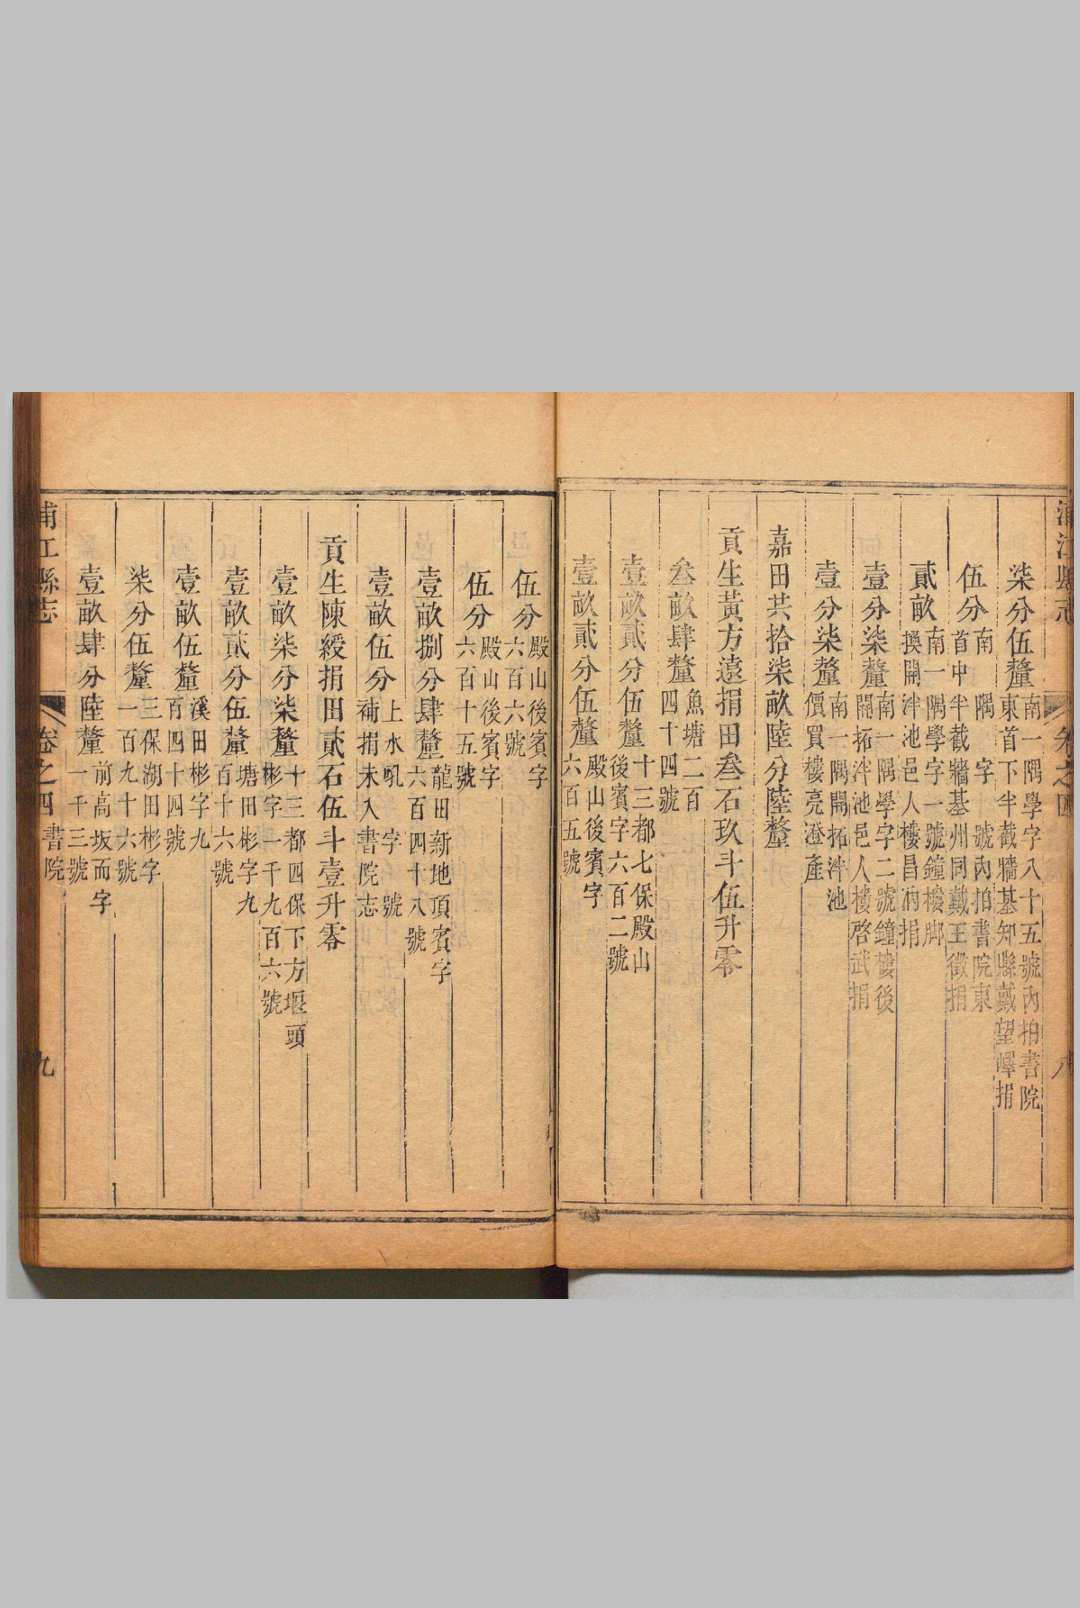 浦江縣志 卷之四 八
柒分伍釐 南一隅學字八十五號內拍書院
東首下半截牆基知縣戴望嶧捐
伍分 南隅 字 號內拍書院東
首中半截牆基州同戴王徵捐
貳畝 南一隅學字一號鐘樓脚
換開泮池邑人樓昌炳捐
壹分柒釐 南一隅學字二號鐘樓後
開拓泮池邑人樓啓武捐
壹分柒釐 南一隅開拓泮池
價買樓亮澄產
嘉田共拾柒畝陸分陸釐
貢生黃方遠捐田叁石玖斗伍升零
叁畝肆釐 魚塘二百
四十四號
壹畝貳分伍釐 十三都七保殿山
後賓字六百二號
壹畝貳分伍釐 殿山後賓字
六百五號
伍分 殿山後賓字
六百六號
伍分 殿山後賓字
六百十五號
壹畝捌分肆釐 龍田新地頂賓字
六百四十八號
壹畝伍分 上水吼 字 號
補捐未入書院志
貢生陳綬捐田貳石伍斗壹升零
壹畝柒分柒釐 十三都四保下方堰頭
彬字一千九百六號
壹畝貳分伍釐 塘田彬字九
百十六號
壹畝伍釐 溪田彬字九
百四十四號
柒分伍釐 三保湖田彬字
一百九十六號
壹畝肆分陸釐 前高坂而字
一千三號
浦江縣志 卷之四 書院 九